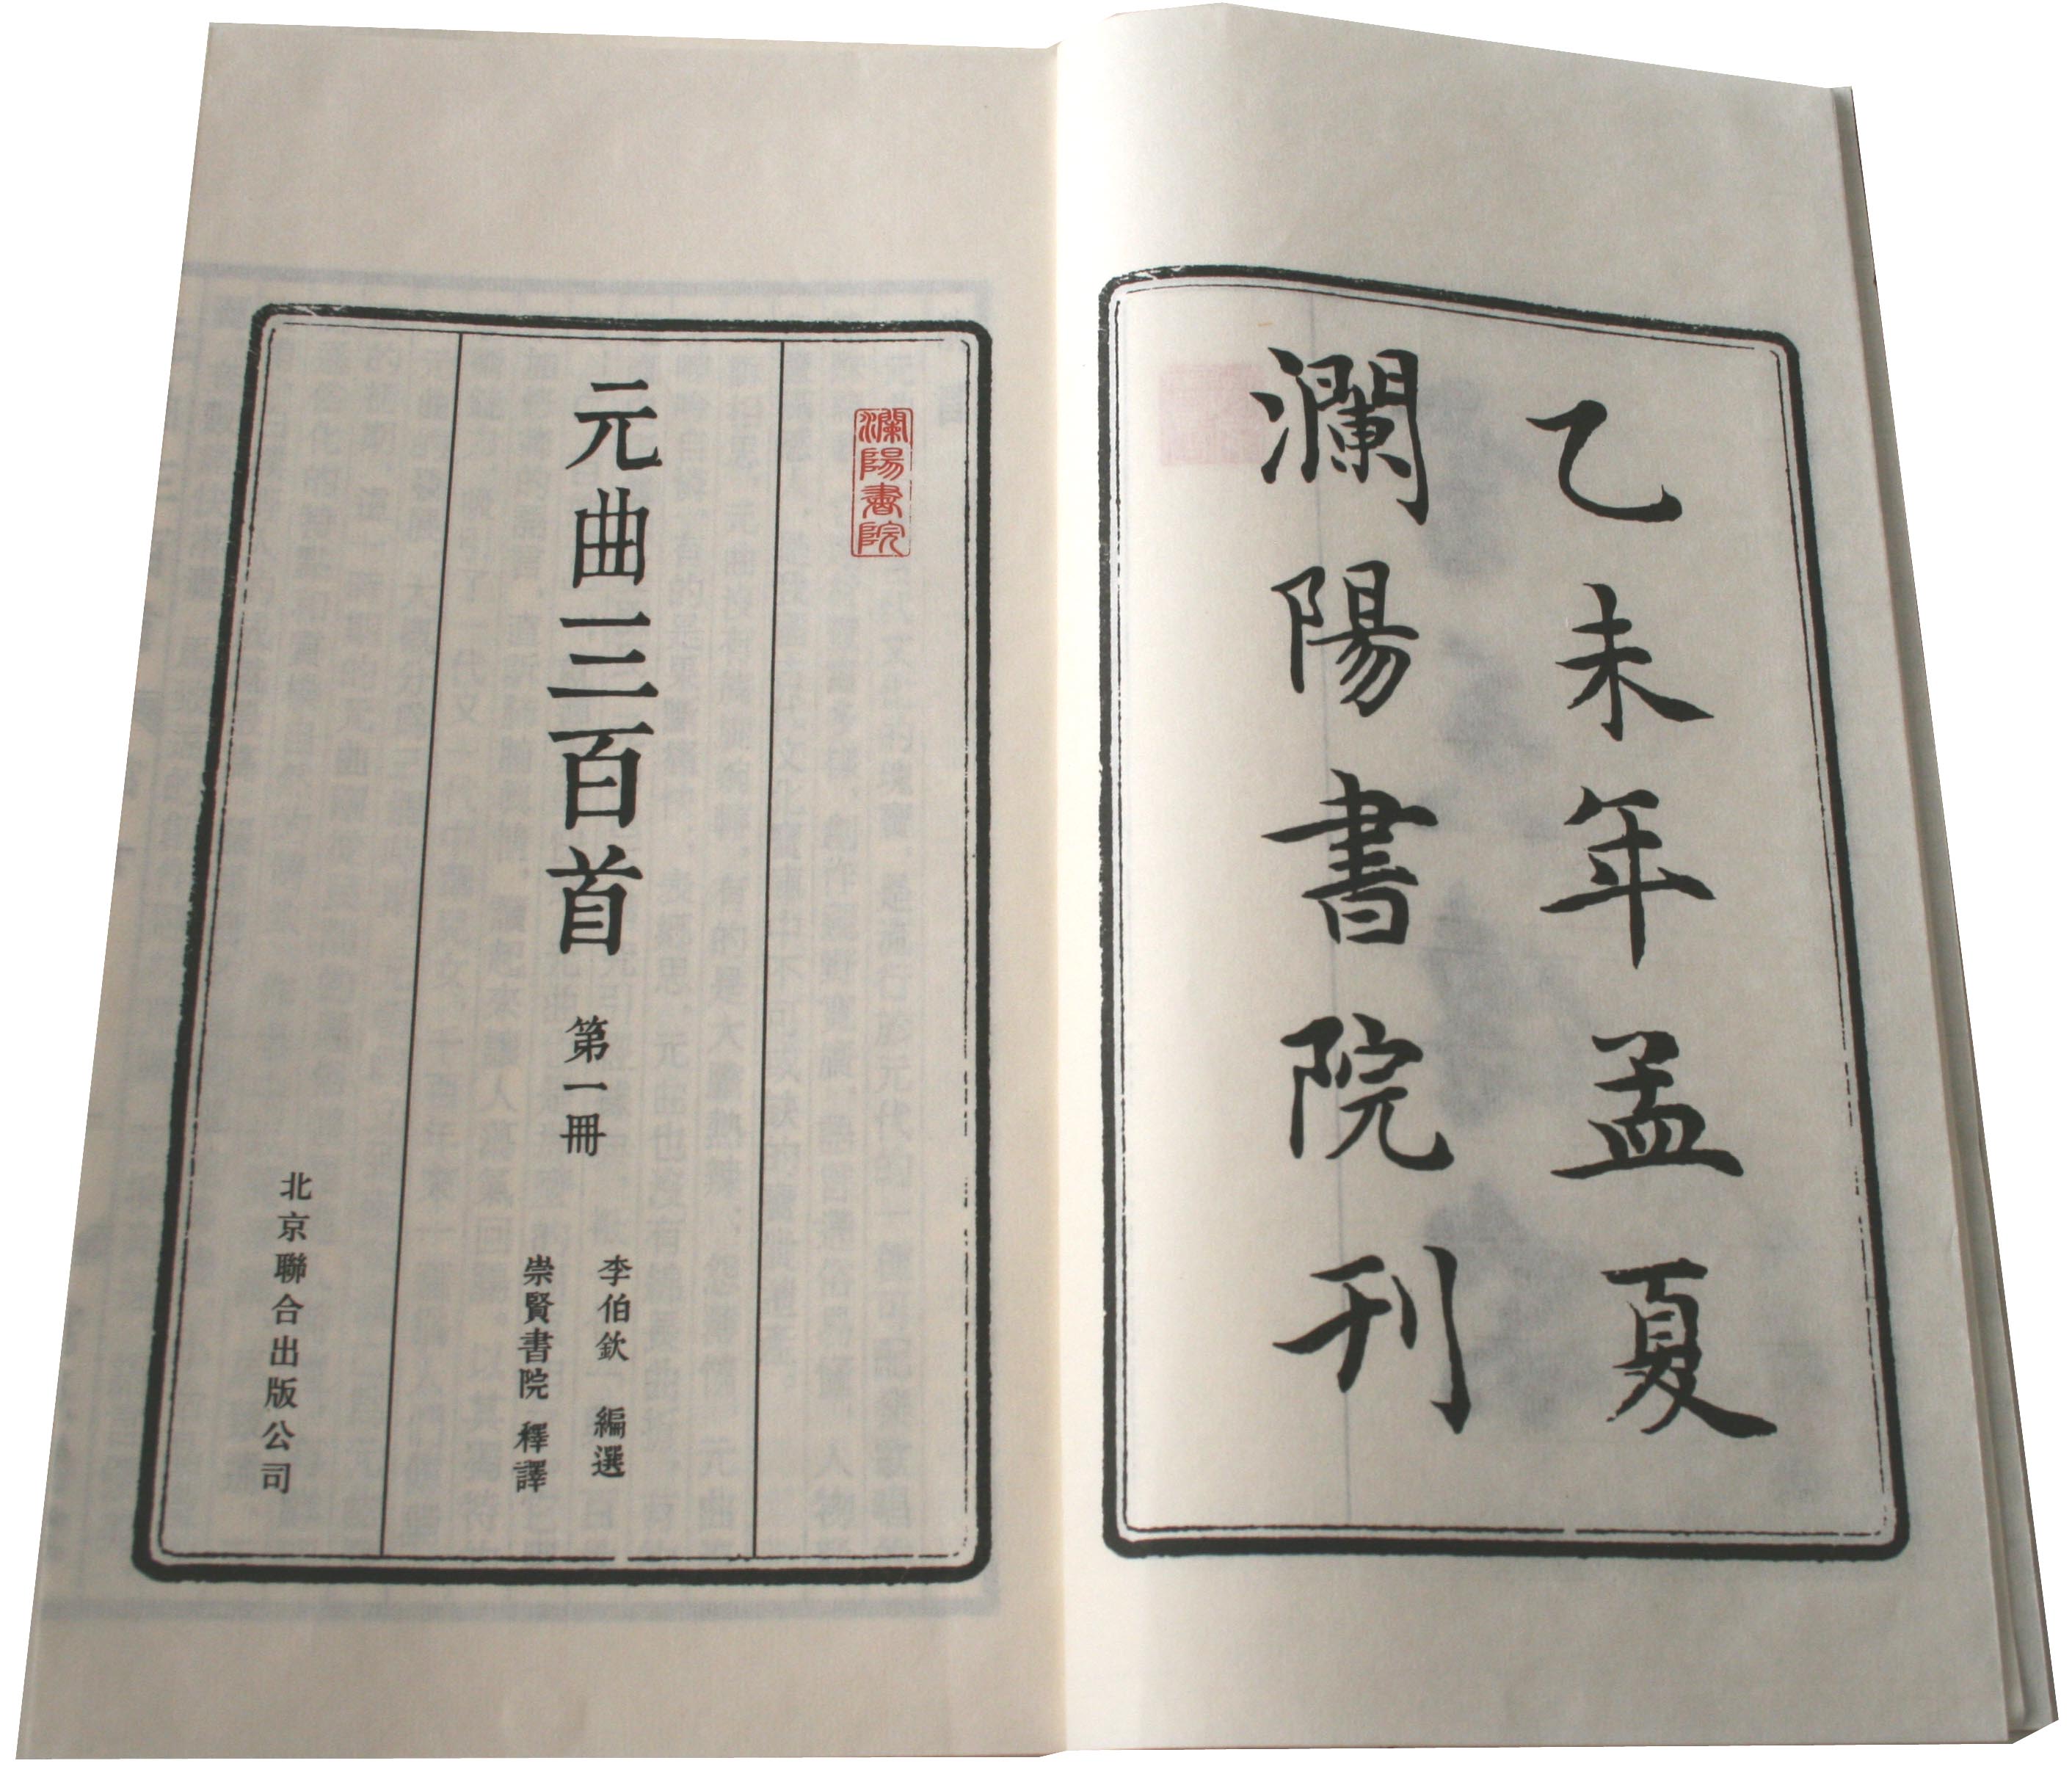 乙未年孟夏
瀾陽書院刊
瀾陽書院
元曲三百首 第一冊
李伯欽 編選
崇賢書院 釋譯
北京聯合出版公司